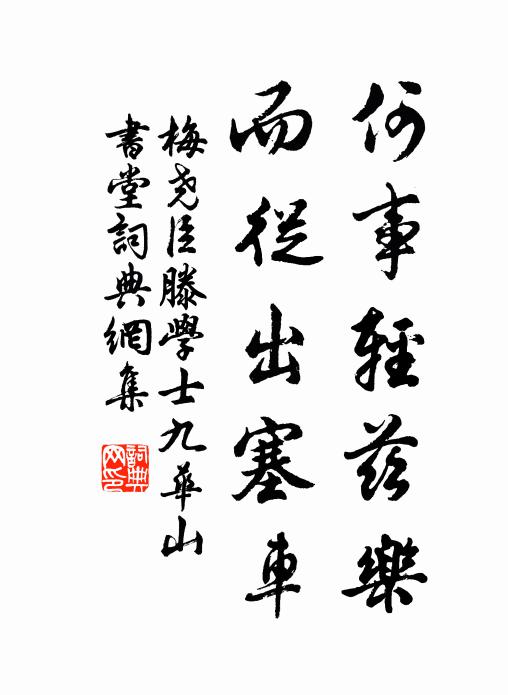 何事輕茲樂
而從出塞車
梅尧臣滕學士九華山
書堂詞典網集
詞典
网印